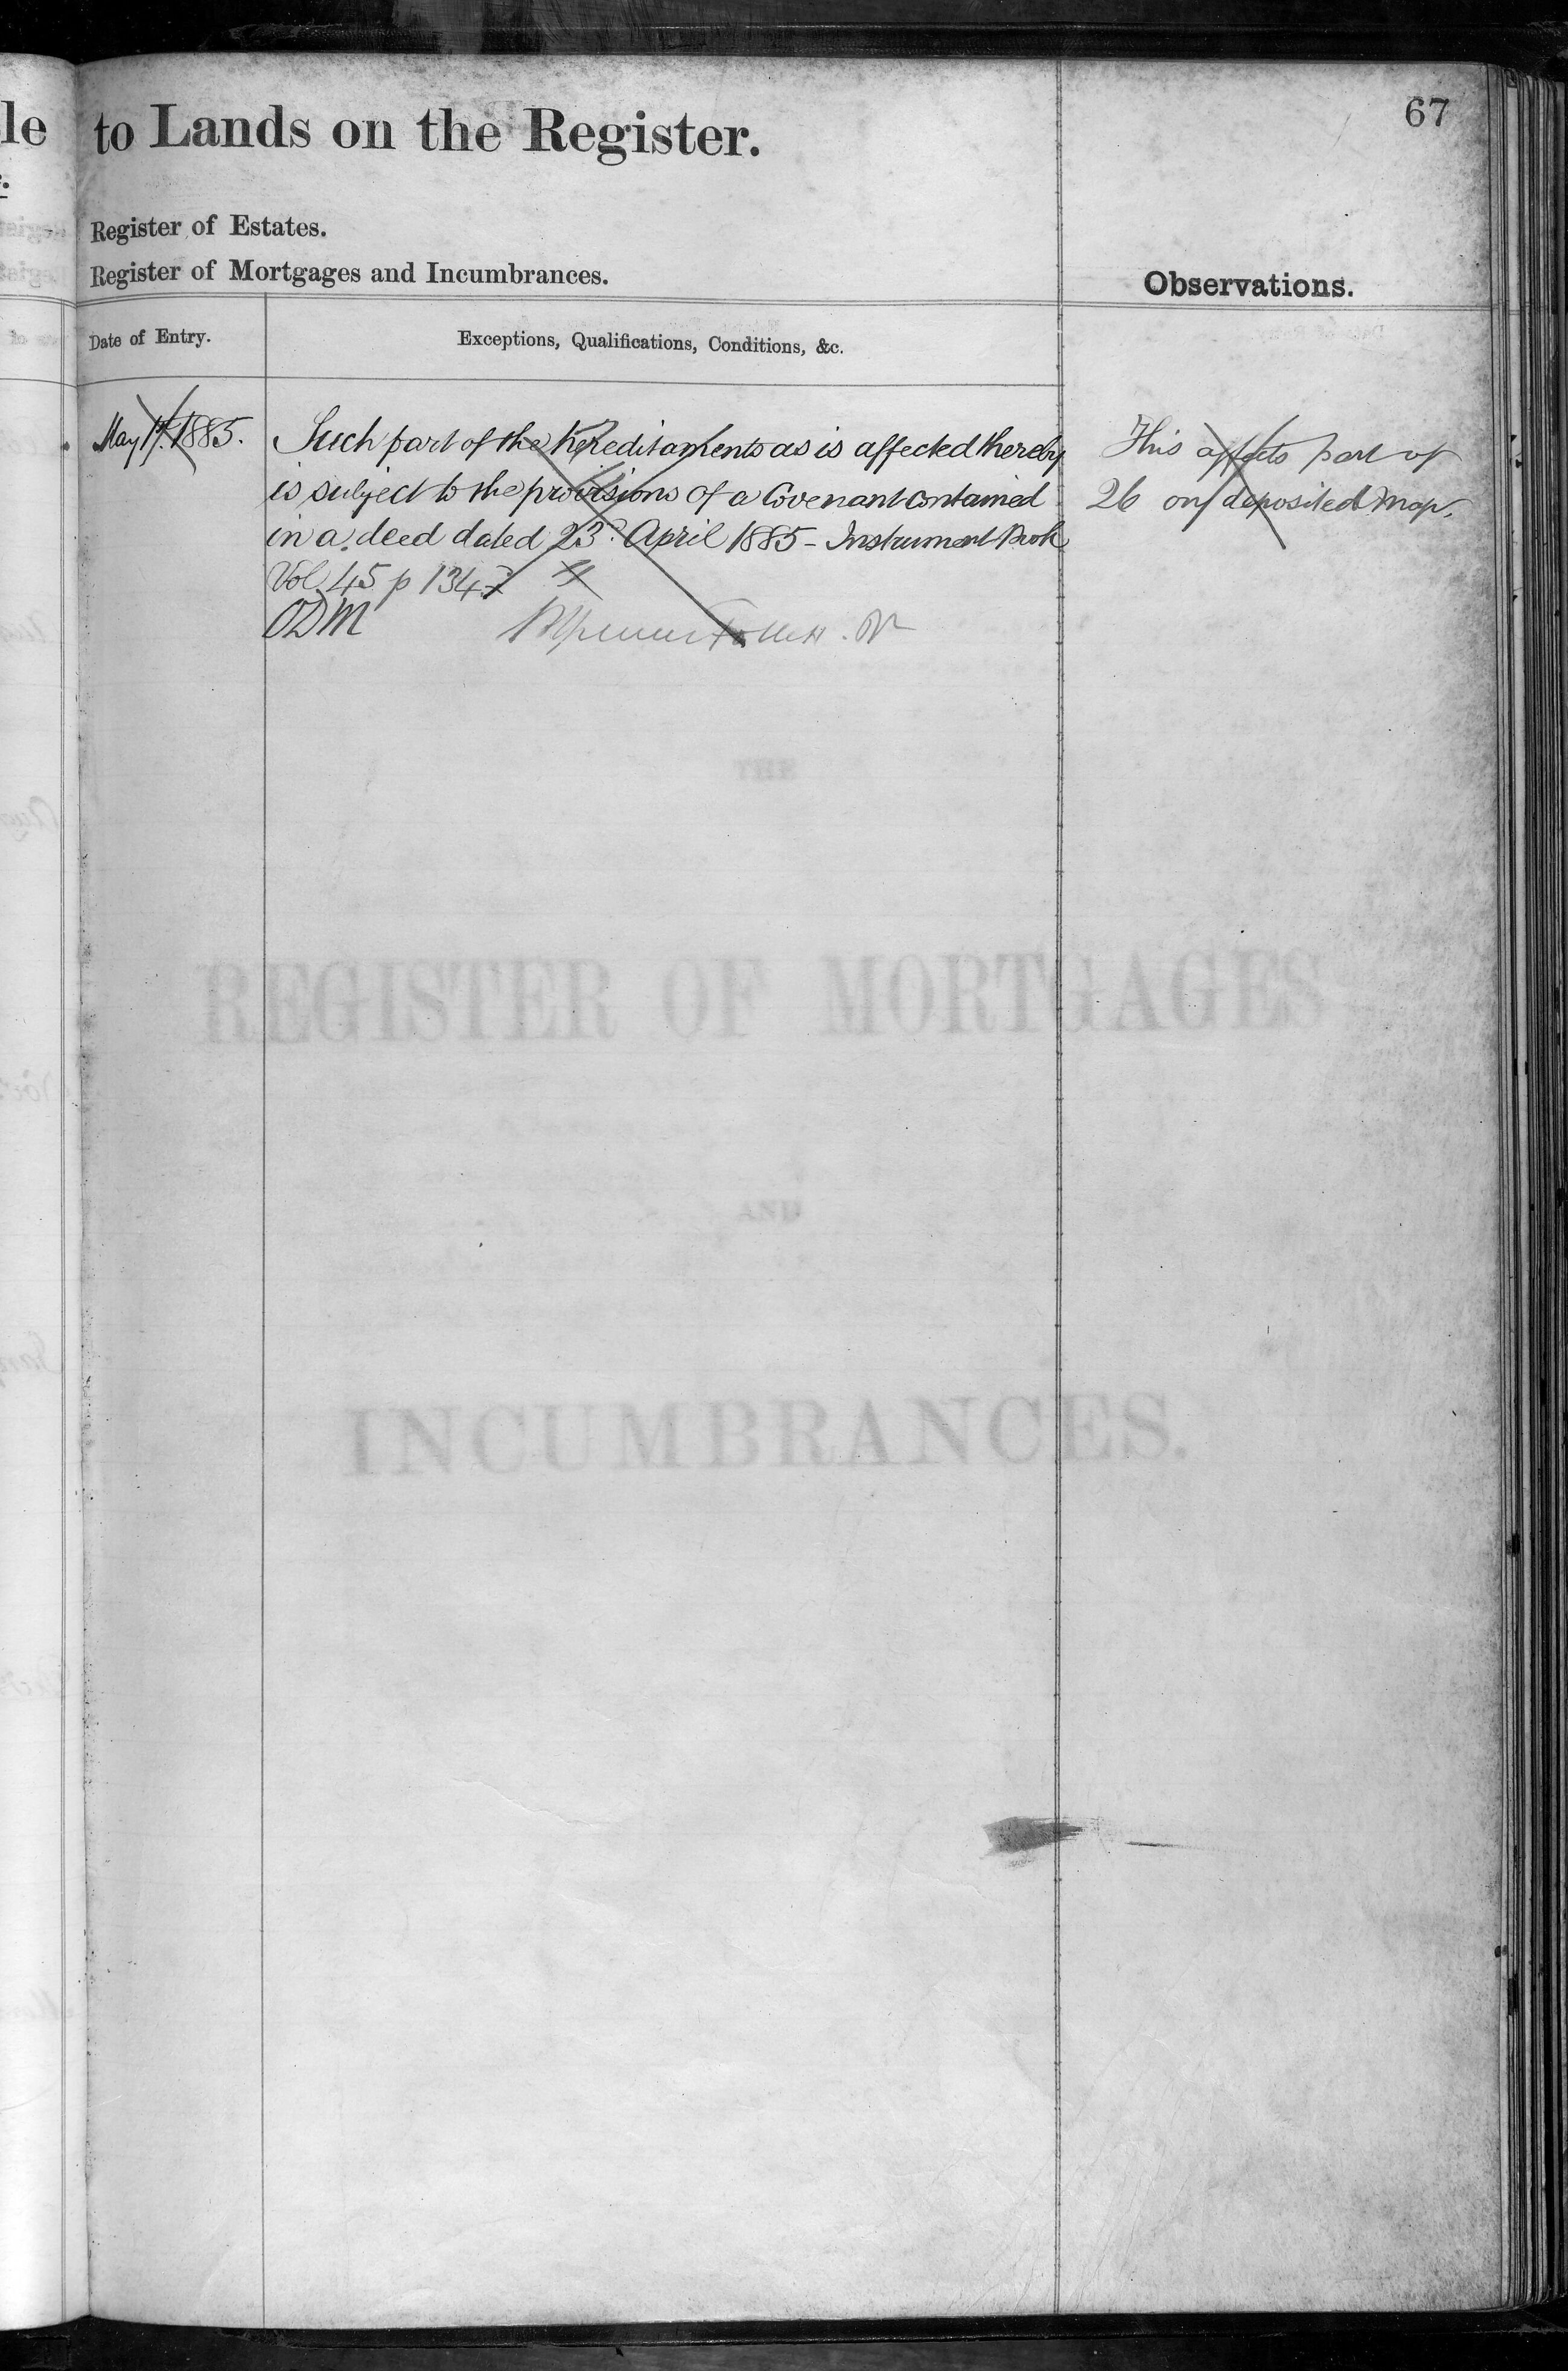 le to Lands on the Register.
67
Register of Estates.
Register of Mortgages and Incumbrances.
Observations.
Date of Entry.
Exceptions, Qualifications, Conditions, &c.
May 1885.
Such part of the hereditaments as is affected thereby
is subject to the provisions of a Covenant contained
in a deed dated 23d April 1885 - Instrument Book
Vol 45 p 1347
ODM
This affects part of
26 on deposited Map.
THE
REGISTER OF MORTGAGES
AND
INCUMBRANCES.